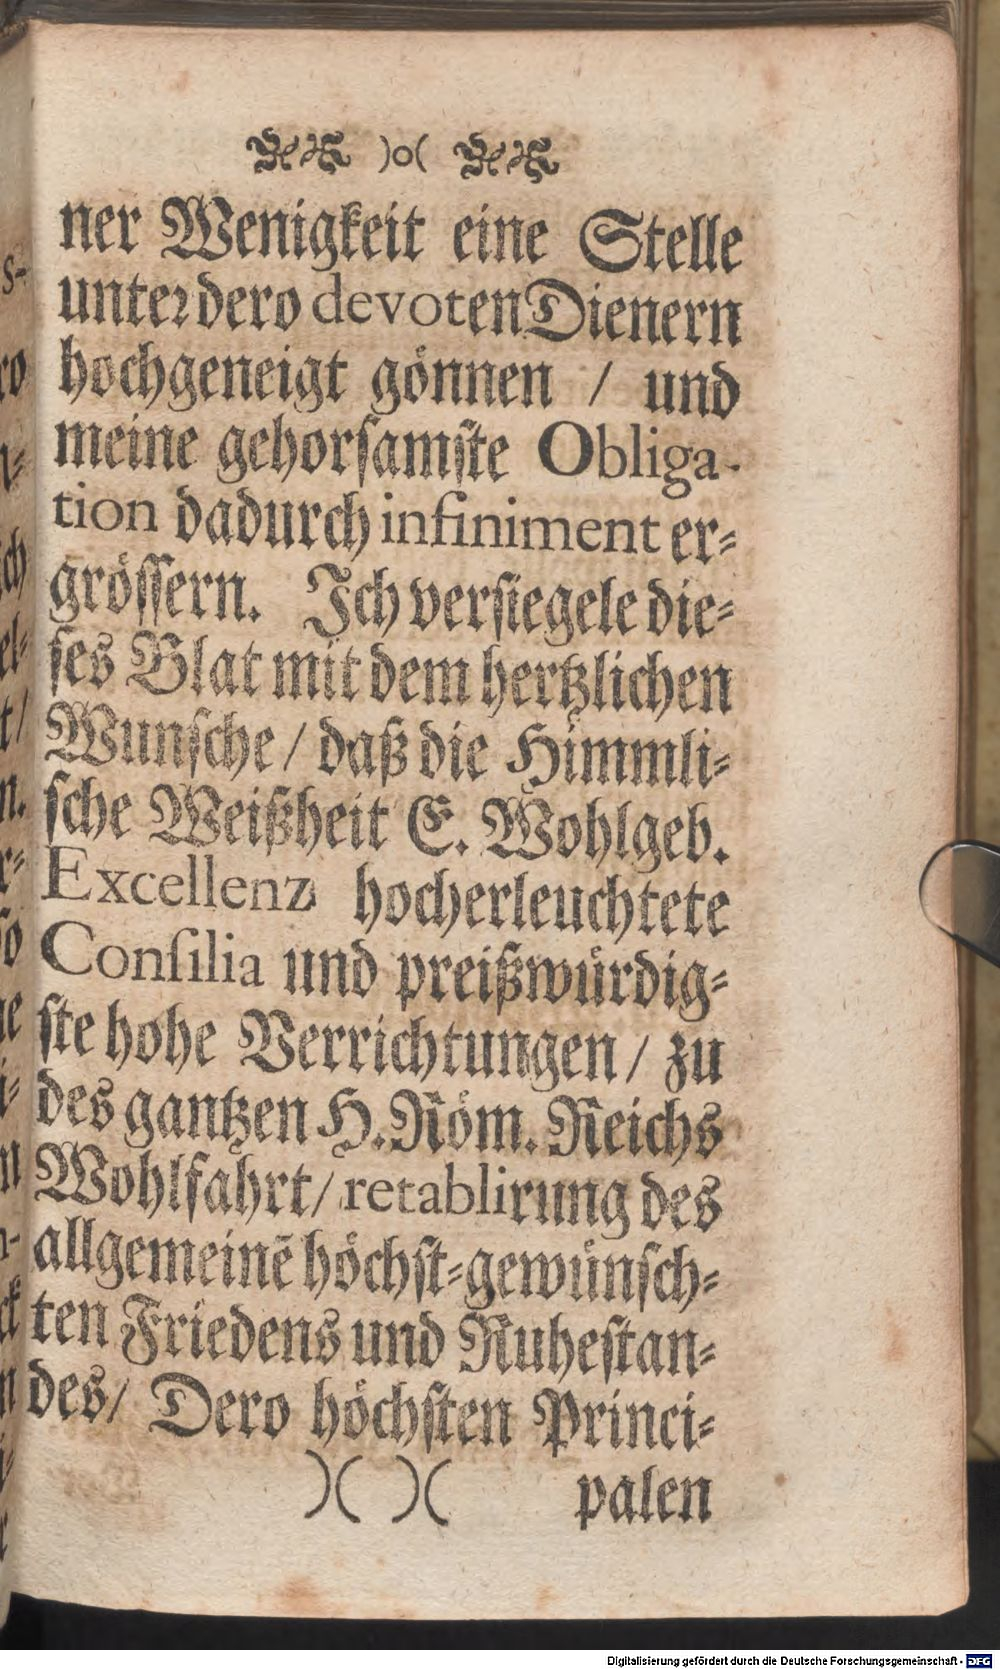 )o(
ner Wenigkeit eine Stelle
unter dero devoten Dienern
hochgeneigt gönnen / und
meine gehorſamſte Obliga-
tion dadurch infiniment er-
gröſſern. Ich verſiegele die-
ſes Blat mit dem hertzlichen
Wunſche / daß die Himmli-
ſche Weißheit E. Wohlgeb.
Excellenz hocherleuchtete
Conſilia und preißwürdig-
ſte hohe Verrichtungen / zu
des gantzen H. Röm. Reichs
Wohlfahrt / retablirung des
allgemeinē höchſt-gewünſch-
ten Friedens und Ruheſtan-
des / Dero höchſten Princi-
)( )( palen
Digitalisierung gefördert durch die Deutsche Forschungsgemeinschaft - DFG